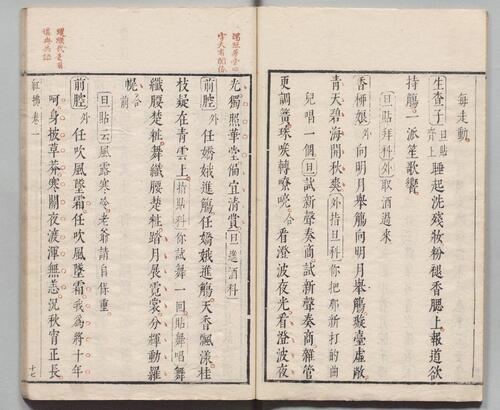 每走動
生查子 旦貼齊上 睡起洗殘妝粉褪香腮上報道欲
持觴一派笙歌響
旦貼拜科外取酒過來
香檀娘外向明月舉觴向明月舉觴駿臺虛敞
青天碧海開秋爽外持旦科你把那新打的曲
兒唱一個旦試新聲奏商試新聲奏商雜管
更調簧珠喉轉嘹喨合看澄波夜光看澄波夜
光獨照華堂偏宜清賞旦進酒科
前腔外任嬌娥進觴任嬌娥進觴天香飄漾桂
枝疑在青雲上指貼科你試舞一回貼舞唱舞
纖腰楚粧舞纖腰楚粧踏月展霓裳分輝動羅
幌合前
旦貼云風露寒冷老爺請自保重
前腔外任吹風墜霜任吹風墜霜我為將十年
呵身披草莽寒關夜渡渾無恙況秋宵正長
紅拂卷一
十七